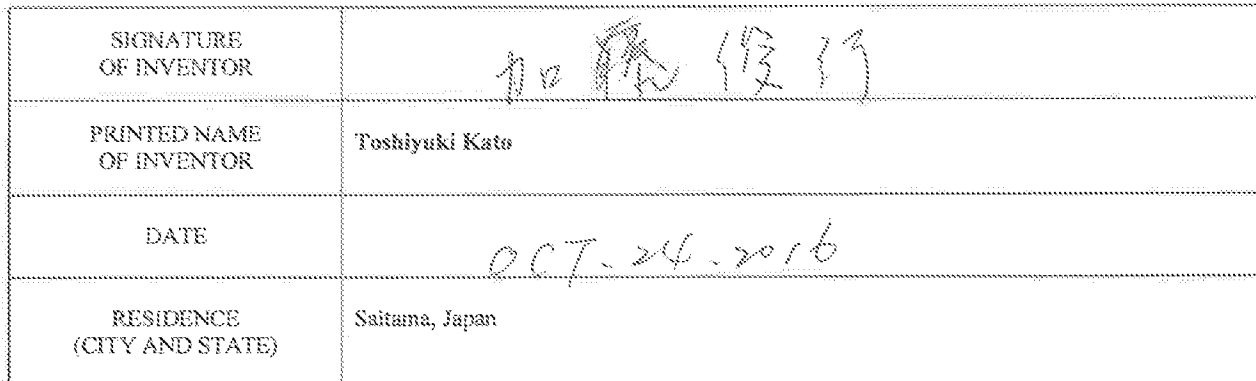 SIGNATURE
OF INVENTOR
加藤 俊行
PRINTED NAME
OF INVENTOR
Toshiyuki Kato
DATE
OCT. 24. 2016
RESIDENCE
(CITY AND STATE)
Saitama, Japan